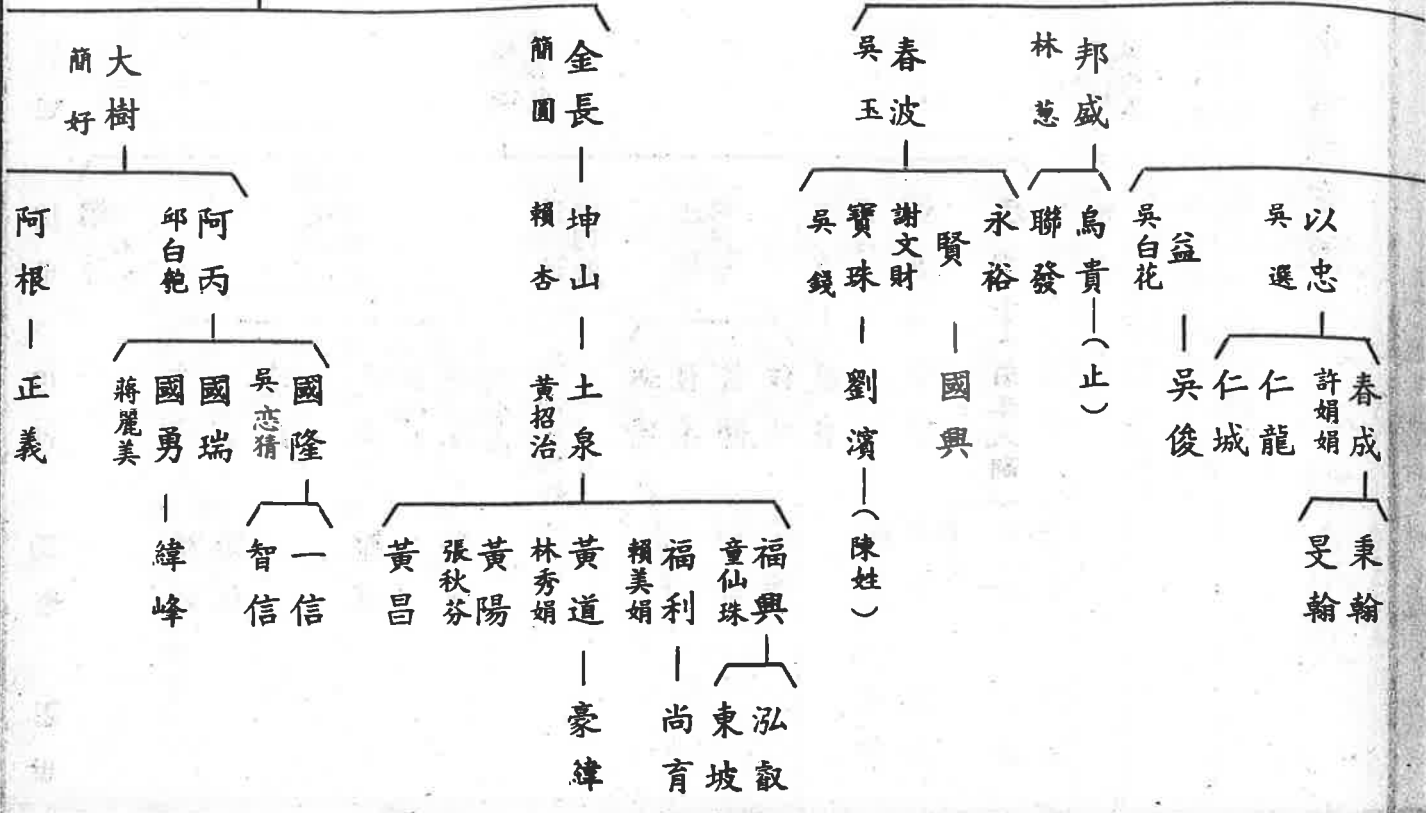 邦盛
林葱
春波
吳玉
金長
簡圓
大樹
簡好
以忠
吳選
益
吳白花
烏貴
(止)
聯發
永裕
賢
謝文財
寶珠
吳錢
坤山
賴杏
阿丙
邱白匏
阿根
春成
許娟娟
仁龍
仁城
吳俊
國興
劉濱
(陳姓)
土泉
黃招治
國隆
吳恋猜
國瑞
國勇
蔣麗美
正義
秉翰
旻翰
福興
童仙珠
福利
賴美娟
黃道
林秀娟
黃陽
張秋芬
黃昌
一信
智信
緯峰
泓叡
東坡
尚育
豪緯